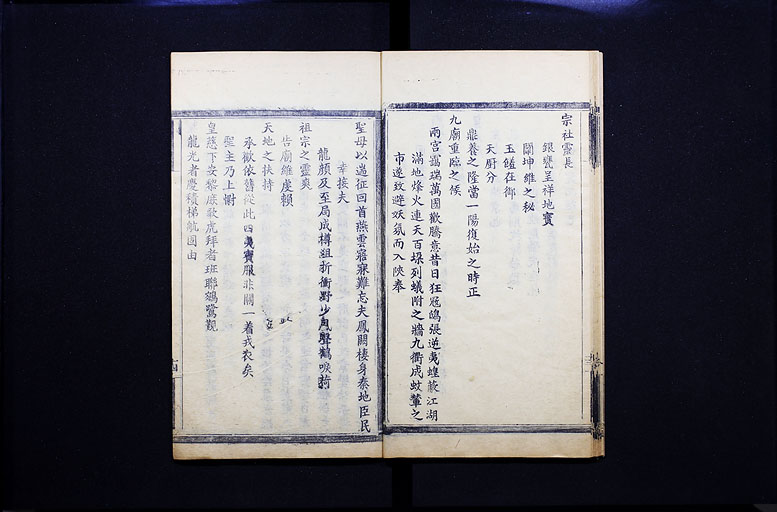 宗社靈長
銀甕呈祥地寶
闡坤維之秘
玉饈在御
天厨分
鼎養之隆當一陽復始之時正
九廟重臨之候
兩宮靄瑞萬國歡騰意昔日狂寇鴟張逆夷蝗蔽江湖
滿地烽火連天百堞列蟻附之牆九衢成蚊蕈之
市遂致避妖氛而入陝奉
聖母以遄征回首燕雲寤寐難忘夫鳳闕棲身秦地臣民
幸接夫
龍顔及至局成樽俎折衝野少風聲鶴唳荷
祖宗之靈爽
告廟維虔賴
天地之扶持
承歡依舊從此四夷賓服非關一着戎衣矣
聖主乃上酬
皇慈下妥黎庶敎虎拜者班聯鵷鷺覲
龍光者慶積梯航固由